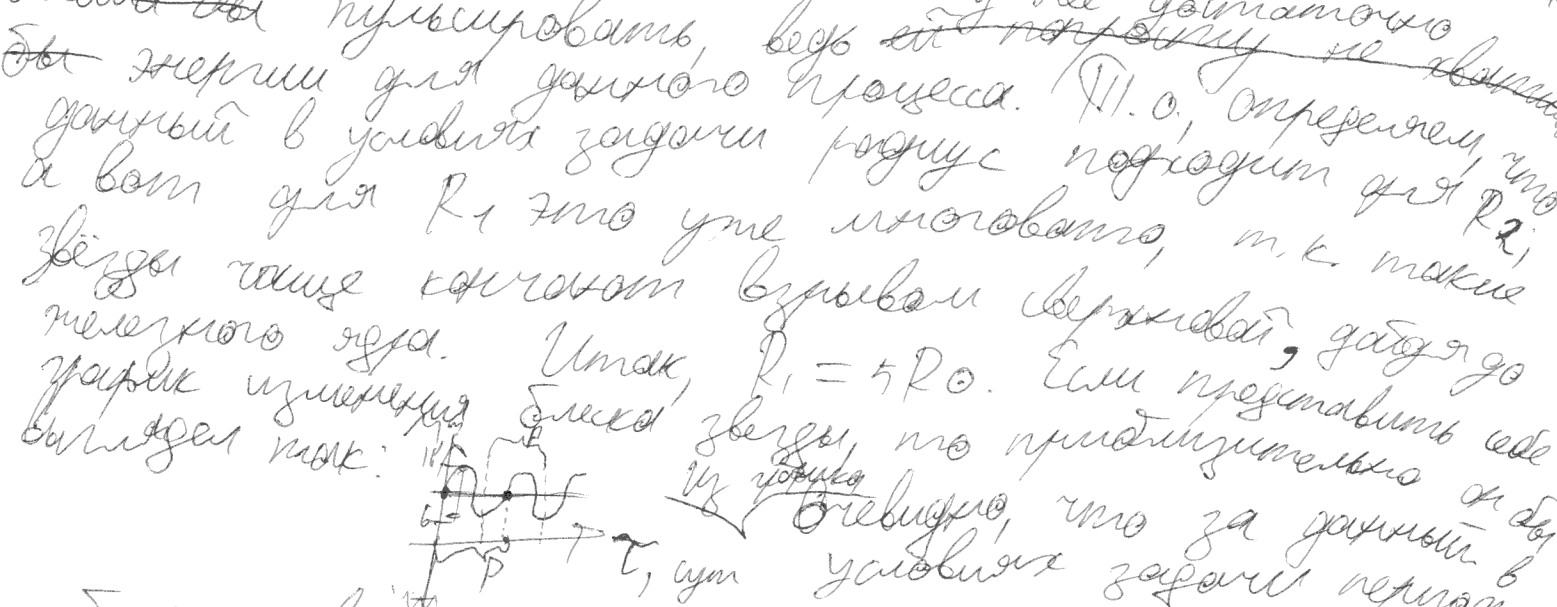 пульсировать, ведь у неё достаточно
бы энергии для данного процесса. Т.о., определяем, что
данный в условиях задачи радиус подходит для R2,
а вот для R1 это уже многовато, т.к. такие
звёзды чаще кончают взрывом сверхновой, дойдя до
железного ядра. Итак, R1 = 5R⊙. Если представить себе
график изменения блеска звезды, то приблизительно он бы
выглядел так:
из графика
Очевидно, что за данный в
условиях задачи период
P
T
τ, сут